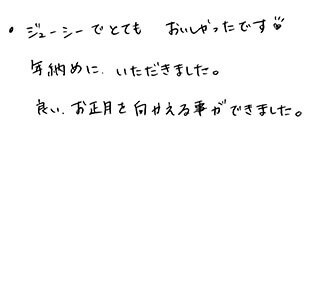 ・ジューシーでとても おいしかったです
年納めに、いただきました。
良い、お正月を向かえる事ができました。